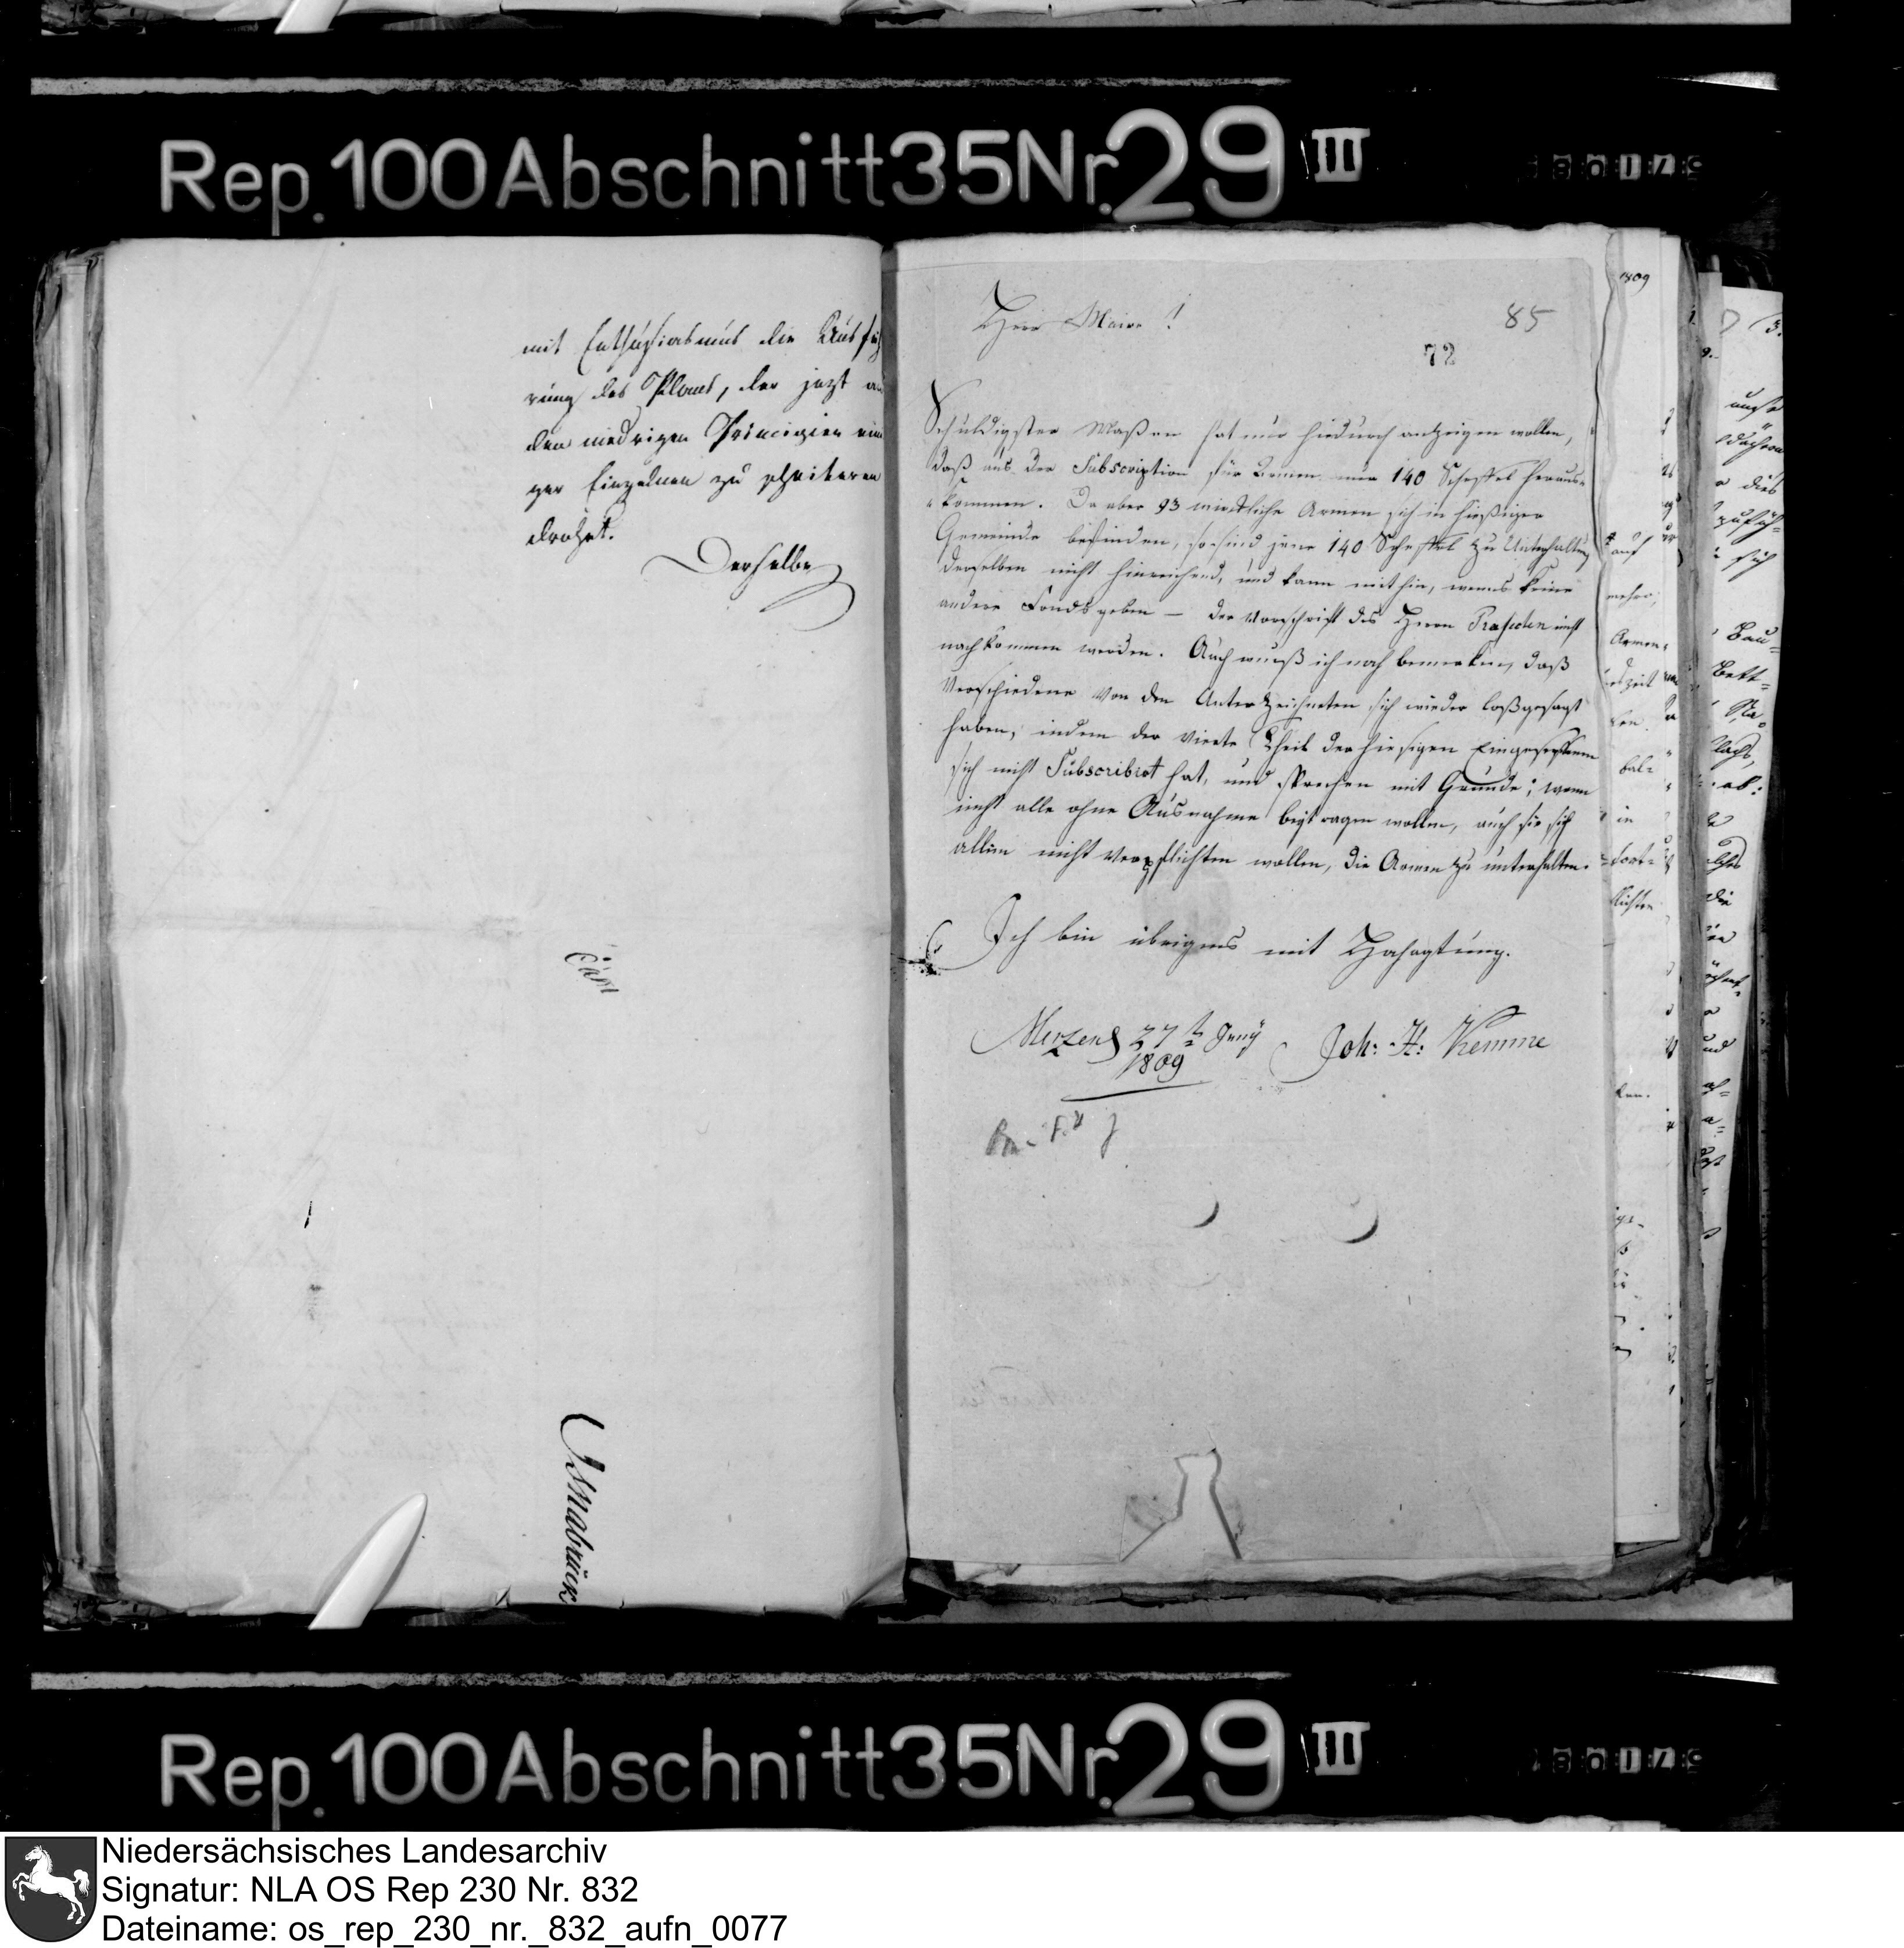 Rep. 100 Abschnitt 35 Nr. 29 III
mit Enthusiasmus die Ausfüh
rung des Plans, der jezt an
den niedrigen Principien eini
ger Einzelnen zu scheiteren
drohet.
Derselbe
Osnabrück
85
Herr Maire!
72
Schuldigster Maßen hat nur hiedurch anzeigen wollen,
daß aus der Subscription für Armen nur 140 Scheffel heraus-
-kommen. Da aber 93 wirkliche Armen sich in hießiger
Gemeinde befinden, so sind jene 140 Scheffel zu Unterhaltung
derselben nicht hinreichend, und kann mithin, wenns keine
andere Fonds geben — der Vorschrift des Herrn Præfecten nicht
nachkommen werden. Auch muß ich noch bemerken, daß
Verschiedene von den Unterzeichneten sich wieder loßgesagt
haben, indem der vierte Theil der hiesigen Eingesessenen
sich nicht Subscribirt hat, und sprechen mit Grunde; wenn
nicht alle ohne Ausnahme beytragen wollen, auch sie sich
allein nicht verpflichten wollen, die Armen zu unterhalten.
Ich bin übrigens mit Hochagtung.
Merzen 27t Juny
1809
Joh: H: Kemme
1809
auf
mehr,
Armen-
in
Bau-
dies
sich
Bett-
und
die
Rep. 100 Abschnitt 35 Nr. 29 III
Niedersächsisches Landesarchiv
Signatur: NLA OS Rep 230 Nr. 832
Dateiname: os_rep_230_nr._832_aufn_0077